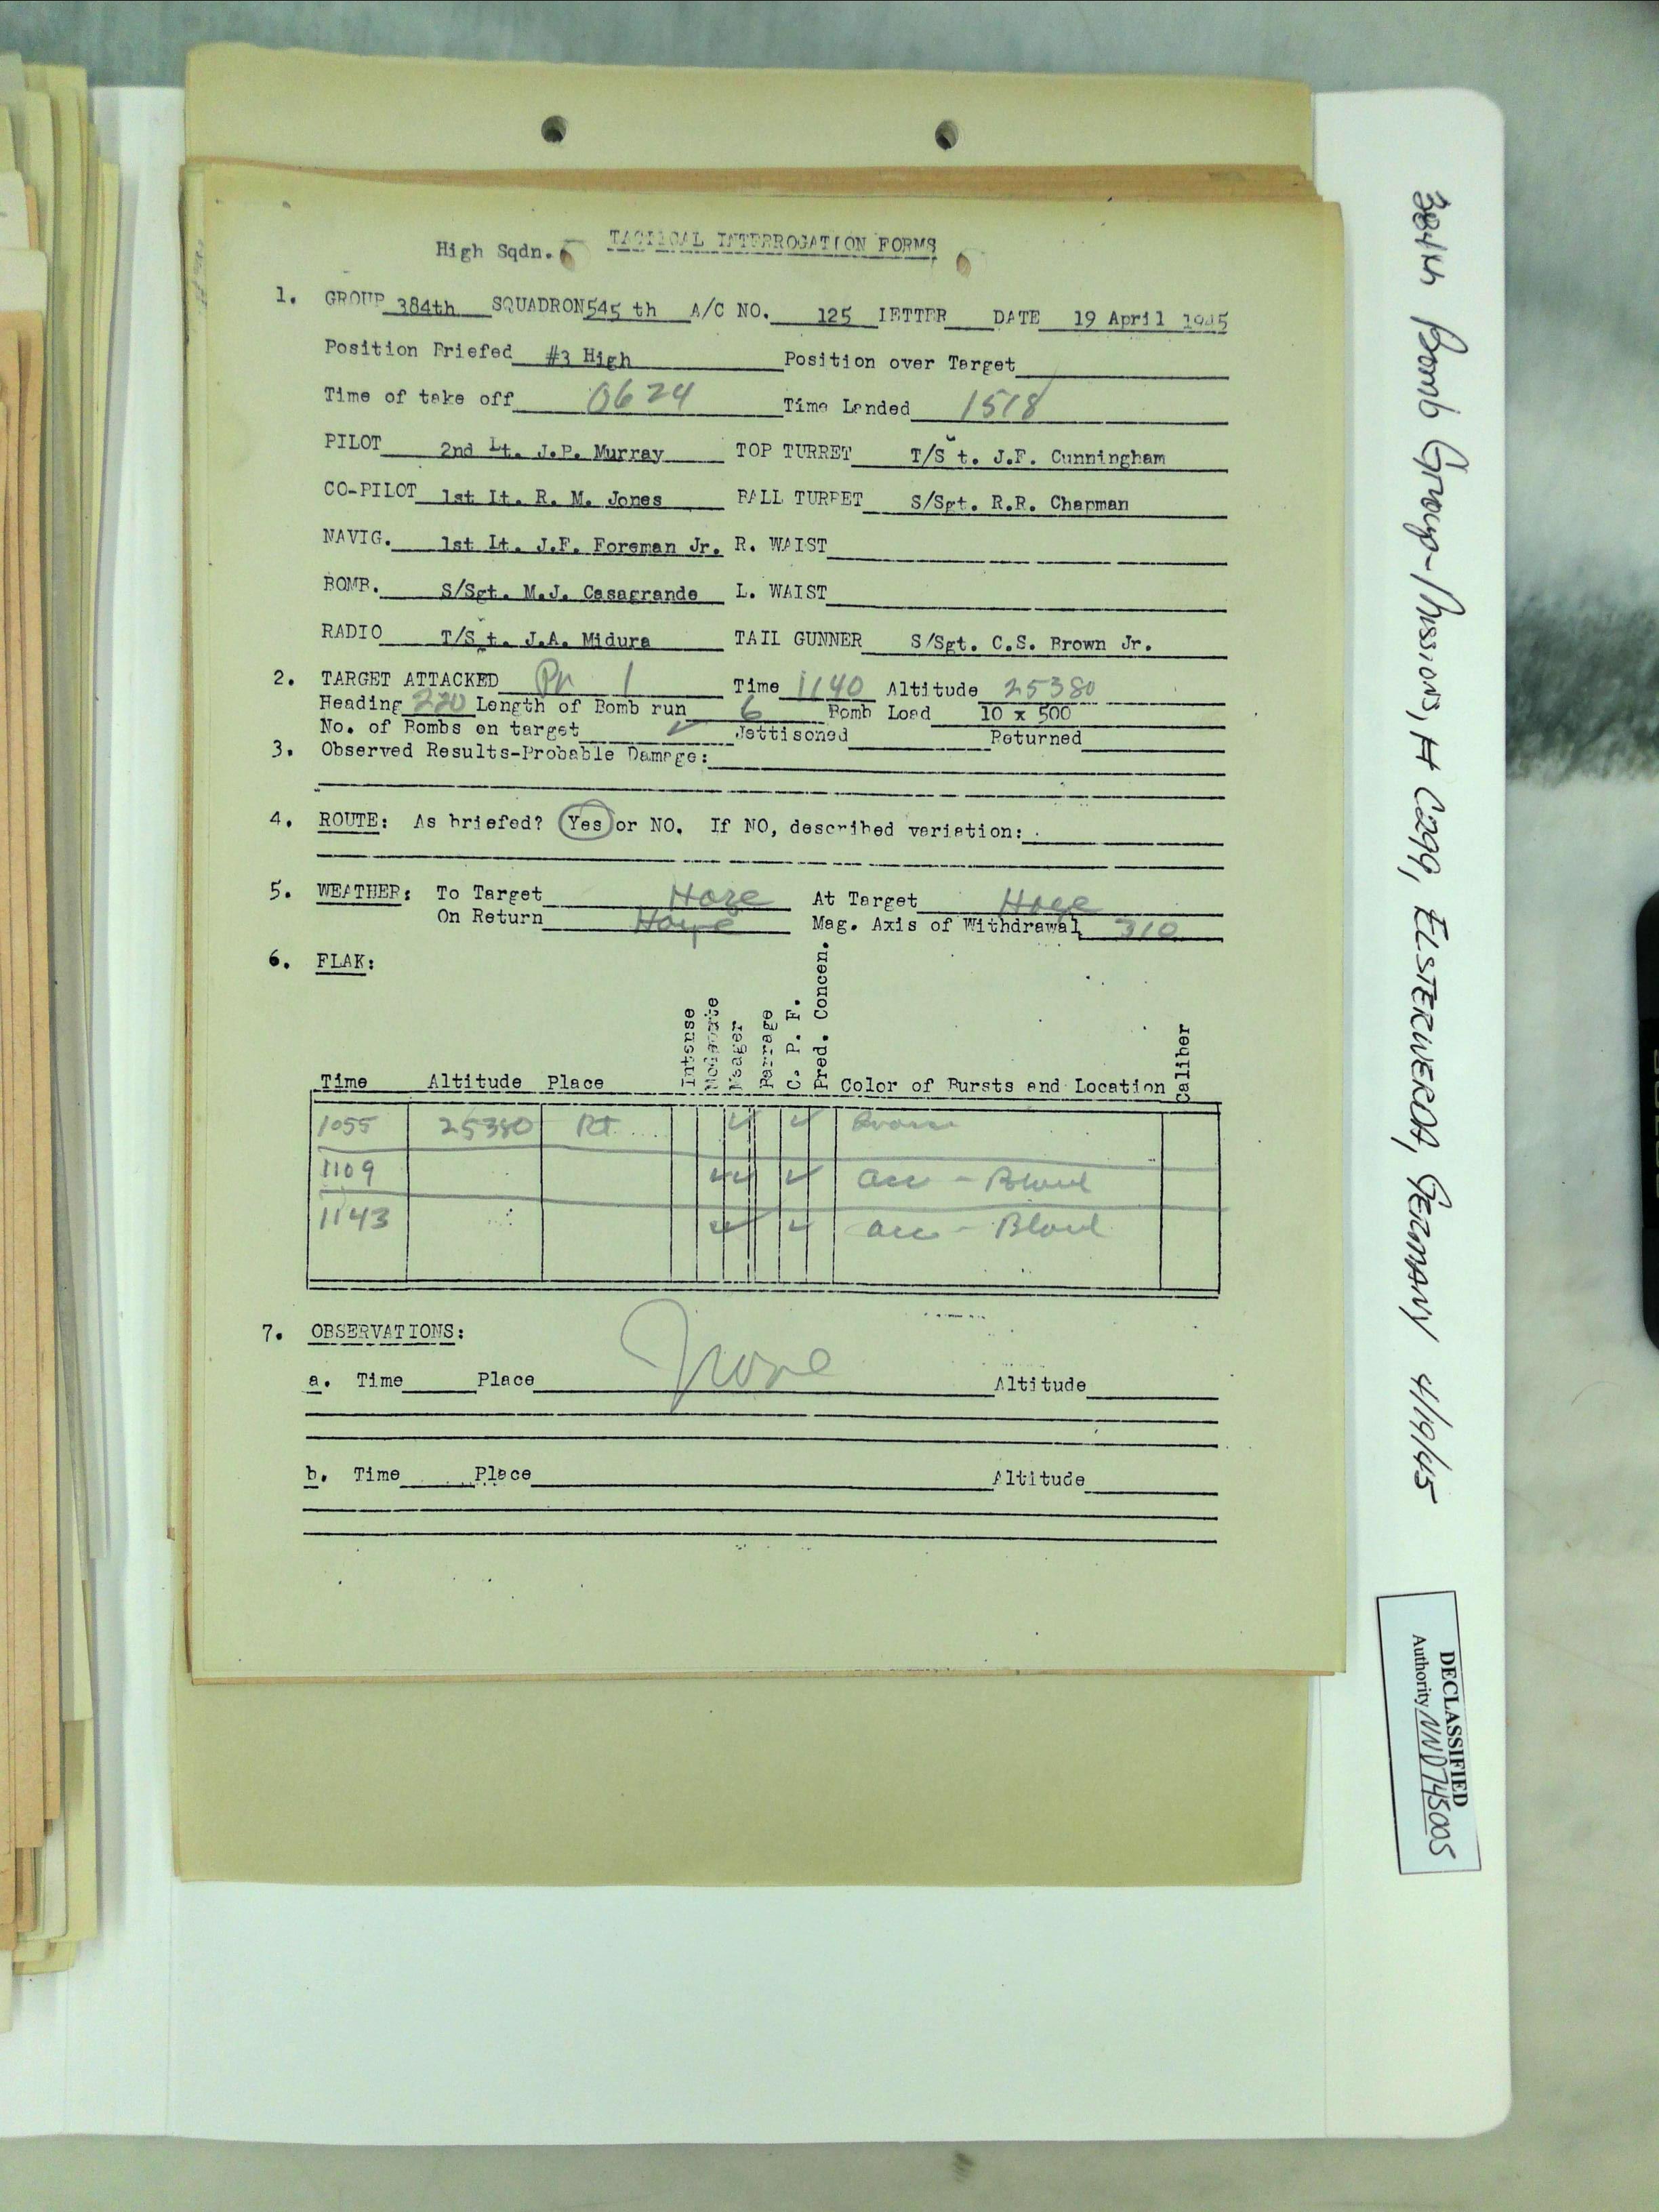 High Sqdn. TACTICAL INTERROGATION FORMS
1. GROUP 384th SQUADRON 545 th A/C NO. 125 LETTER DATE 19 April 1945
Position Briefed #3 High Position over Target
Time of take off 0624 Time Landed 1518
PILOT 2nd Lt. J.P. Murray TOP TURRET T/S t. J.F. Cunningham
CO-PILOT 1st Lt. R. M. Jones BALL TURRET S/Sgt. R.R. Chapman
NAVIG. 1st Lt. J.F. Foreman Jr. R. WAIST
BOMB. S/Sgt. M.J. Casagrande L. WAIST
RADIO T/S t. J.A. Midura TAIL GUNNER S/Sgt. C.S. Brown Jr.
2. TARGET ATTACKED Pr 1 Time 1140 Altitude 25380
Heading 220 Length of Bomb run 6 Bomb Load 10 x 500
No. of Bombs on target ✓ Jettisoned Returned
3. Observed Results-Probable Damage:
4. ROUTE: As briefed? Yes or NO. If NO, described variation:
5. WEATHER: To Target Haze At Target Haze
On Return Haze Mag. Axis of Withdrawal 310
6. FLAK:
Time Altitude Place Intense Moderate Meager Barrage C. P. F. Pred. Concen. Color of Bursts and Location Caliber
1055 25380 Rt ✓ ✓
1109 ✓✓ ✓ acc -
1143 ✓✓ ✓ acc -
7. OBSERVATIONS:
None
a. Time Place Altitude
b. Time Place Altitude
384th Bomb Group-Missions, # C299, ELSTERWERDA, GERMANY 4/19/45
DECLASSIFIED
Authority NND745005